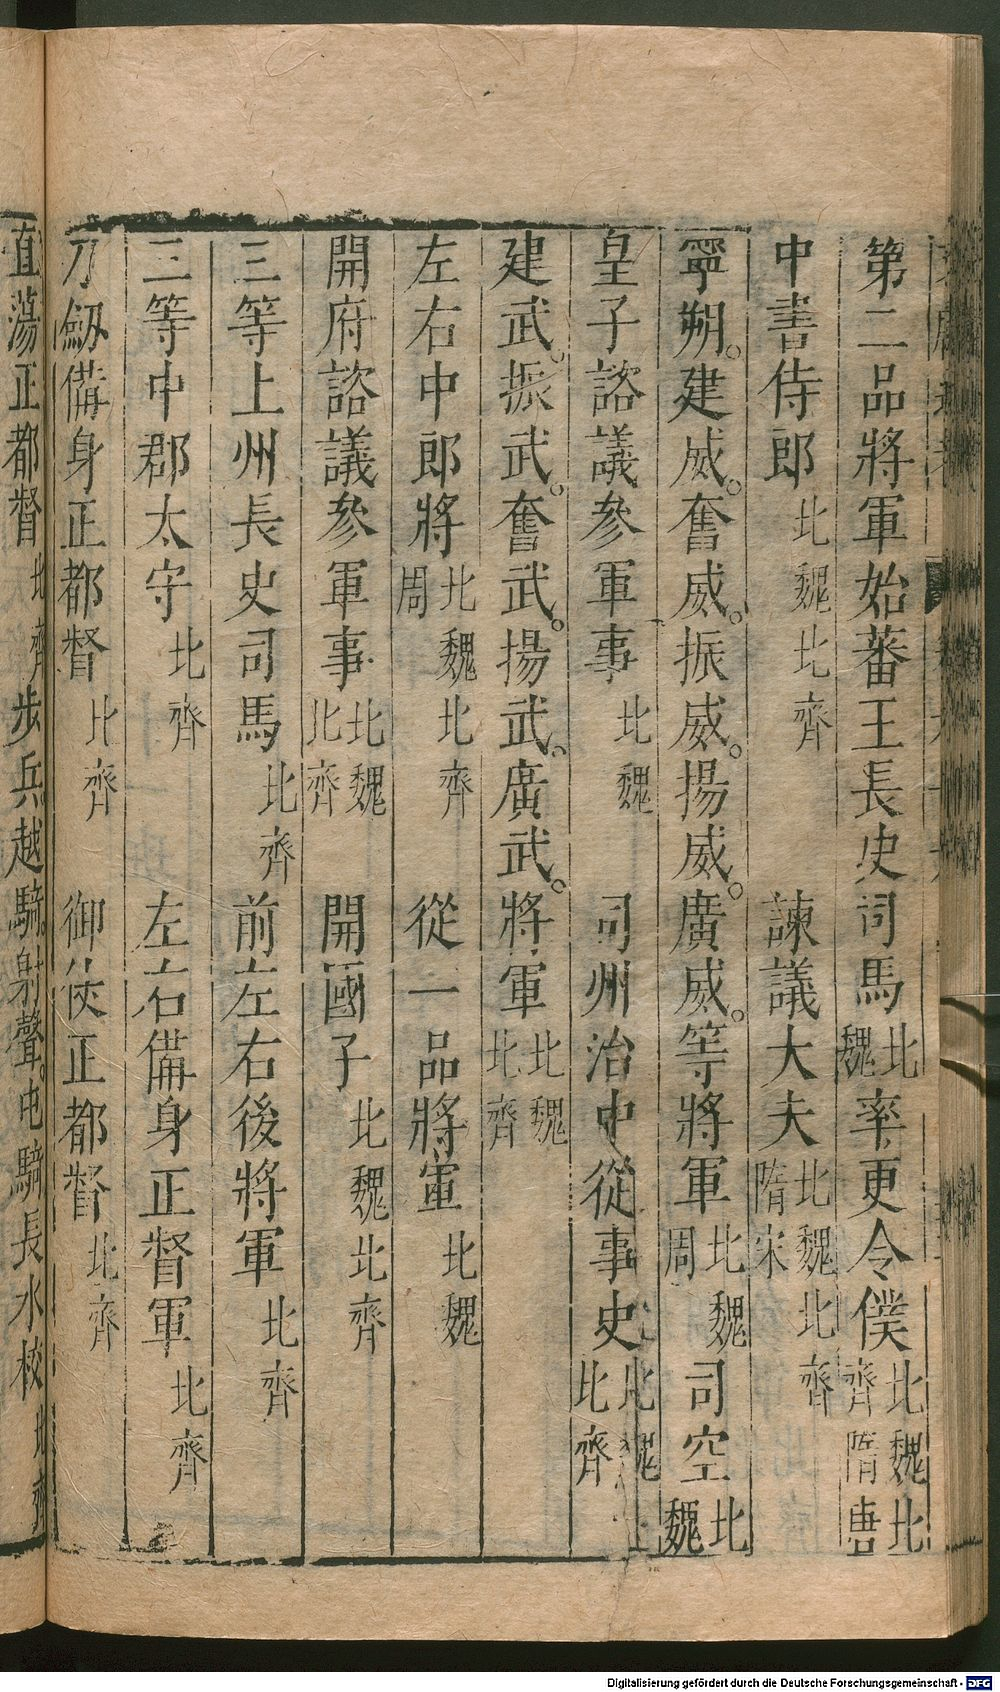 第二品將軍始蕃王長史司馬北魏率更令僕北魏北齊隋唐
中書侍郎北魏北齊諫議大夫北魏北齊隋宋
寧朔。建威。奮威。振威。揚威。廣威。等將軍北魏周司空北魏
皇子諮議參軍事北魏司州治中從事史北魏北齊
建武。振武。奮武。揚武。廣武。將軍北魏北齊
左右中郎將北魏北齊周從一品將軍北魏
開府諮議參軍事北魏北齊開國子北魏北齊
三等上州長史司馬北齊前左右後將軍北齊
三等中郡太守北齊左右備身正督軍北齊
刀劔備身正都督北齊御仗正都督北齊
直蕩正都督北齊步兵。越騎。射聲。屯騎長水校北齊
Digitalisierung gefördert durch die Deutsche Forschungsgemeinschaft - DFG